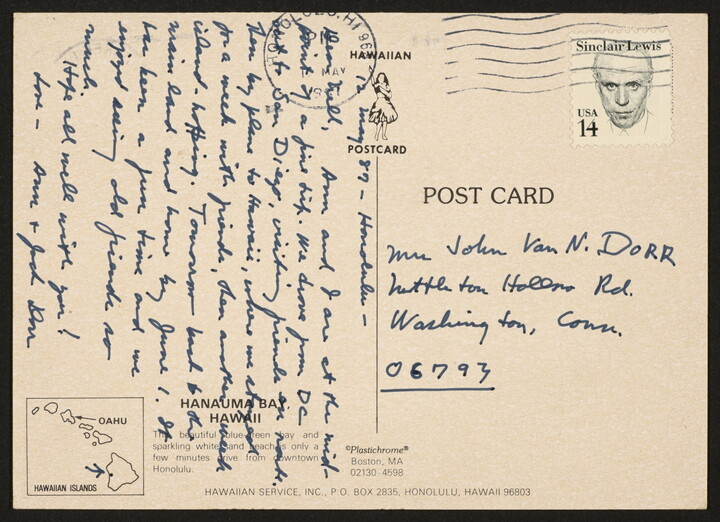 12 May 87 - Honolulu -
Dear Nell, Ann and I are at the mid-
point of a fine trip. We drove from DC
out to San Diego, visiting friends en route.
Then by plane to Hawaii, where we stayed
for a week with friends, then another week
island-hopping. Tomorrow back to the
mainland and home by June 1. It
has been a fun time and we
enjoyed seeing old friends so
much.
Hope all well with you!
Love - Ann + Jack Dorr
HONOLULU, HI 96
MAY
HAWAIIAN
POSTCARD
Sinclair Lewis
USA
14
POST CARD
Mrs John Van N. DORR
Nettleton Hollow Rd.
Washington, Conn.
06793
OAHU
HAWAIIAN ISLANDS
HANAUMA BAY
HAWAII
The beautiful blue green bay and
sparkling white sand beaches only a
few minutes drive from downtown
Honolulu.
©Plastichrome®
Boston, MA
02130-4598
HAWAIIAN SERVICE, INC., P.O. BOX 2835, HONOLULU, HAWAII 96803